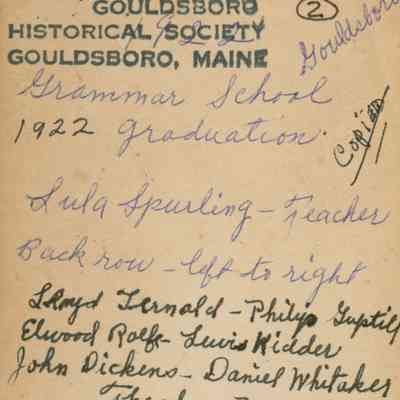 GOULDSBORO
HISTORICAL SOCIETY
GOULDSBORO, MAINE
2
Gouldsboro
Grammar School
1922 graduation.
COPIED
Lula Spurling - Teacher
Back row - left to right
Lloyd Fernald - Philip Guptill
Elwood Rolfe - Lewis Kidder
John Dickens - Daniel Whitaker